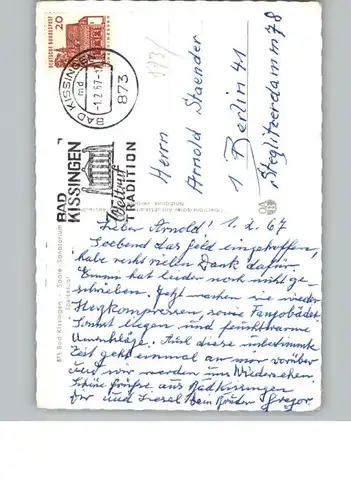 DEUTSCHE BUNDESPOST
20
BAD KISSINGEN
md
-1.2.67-
873
BAD
KISSINGEN
Weltruf
TRADITION
173/
Herrn
Arnold Staender
1 Berlin 41
Steglitzerdamm 78
873 Bad Kissingen - Spare - Sanatorium
Lieber Arnold! 1.2.67
Soebend das Geld eingetroffen,
habe recht vielen Dank dafür.
Emmi hat leider noch nicht ge-
schrieben. Jetzt machen sie wieder
sowie Fangobäder
Sonst liegen und feuchtwarme
Umschläge. Auch diese unbestimmte
Zeit geht einmal an mir vorüber
und wir werden uns Wiedersehen.
Schöne Grüße aus Bad Kissingen
Dir und Liesel Dein Bruder Gregor.